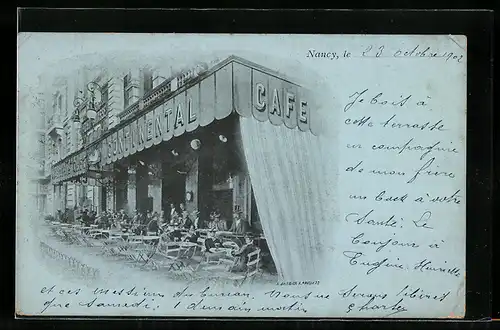 Nancy, le 23 octobre 1902
CONTINENTAL
CAFÉ
Je bois à
cette terrasse
en compagnie
de mon frère
un bock à votre
Santé. Le
bonjour à
Eugène, Henriette
et ces Messieurs du Bureau. Nous ne serons libérés
que Samedi; demain matin